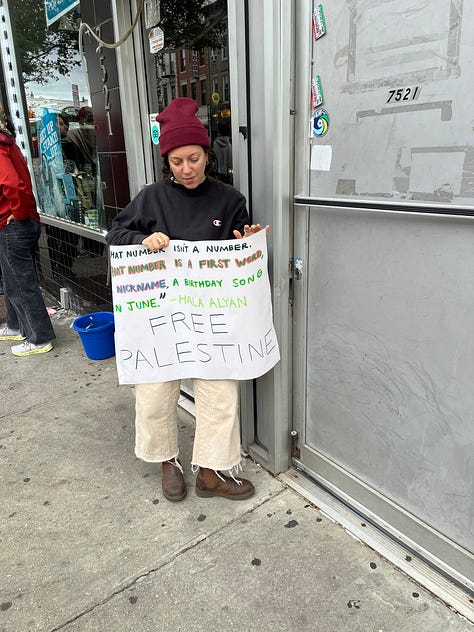 7521
HAT NUMBER ISN'T A NUMBER.
HAT NUMBER IS A FIRST WORD,
NICKNAME, A BIRTHDAY SONG
N JUNE." - HALA ALYAN
FREE
PALESTINE